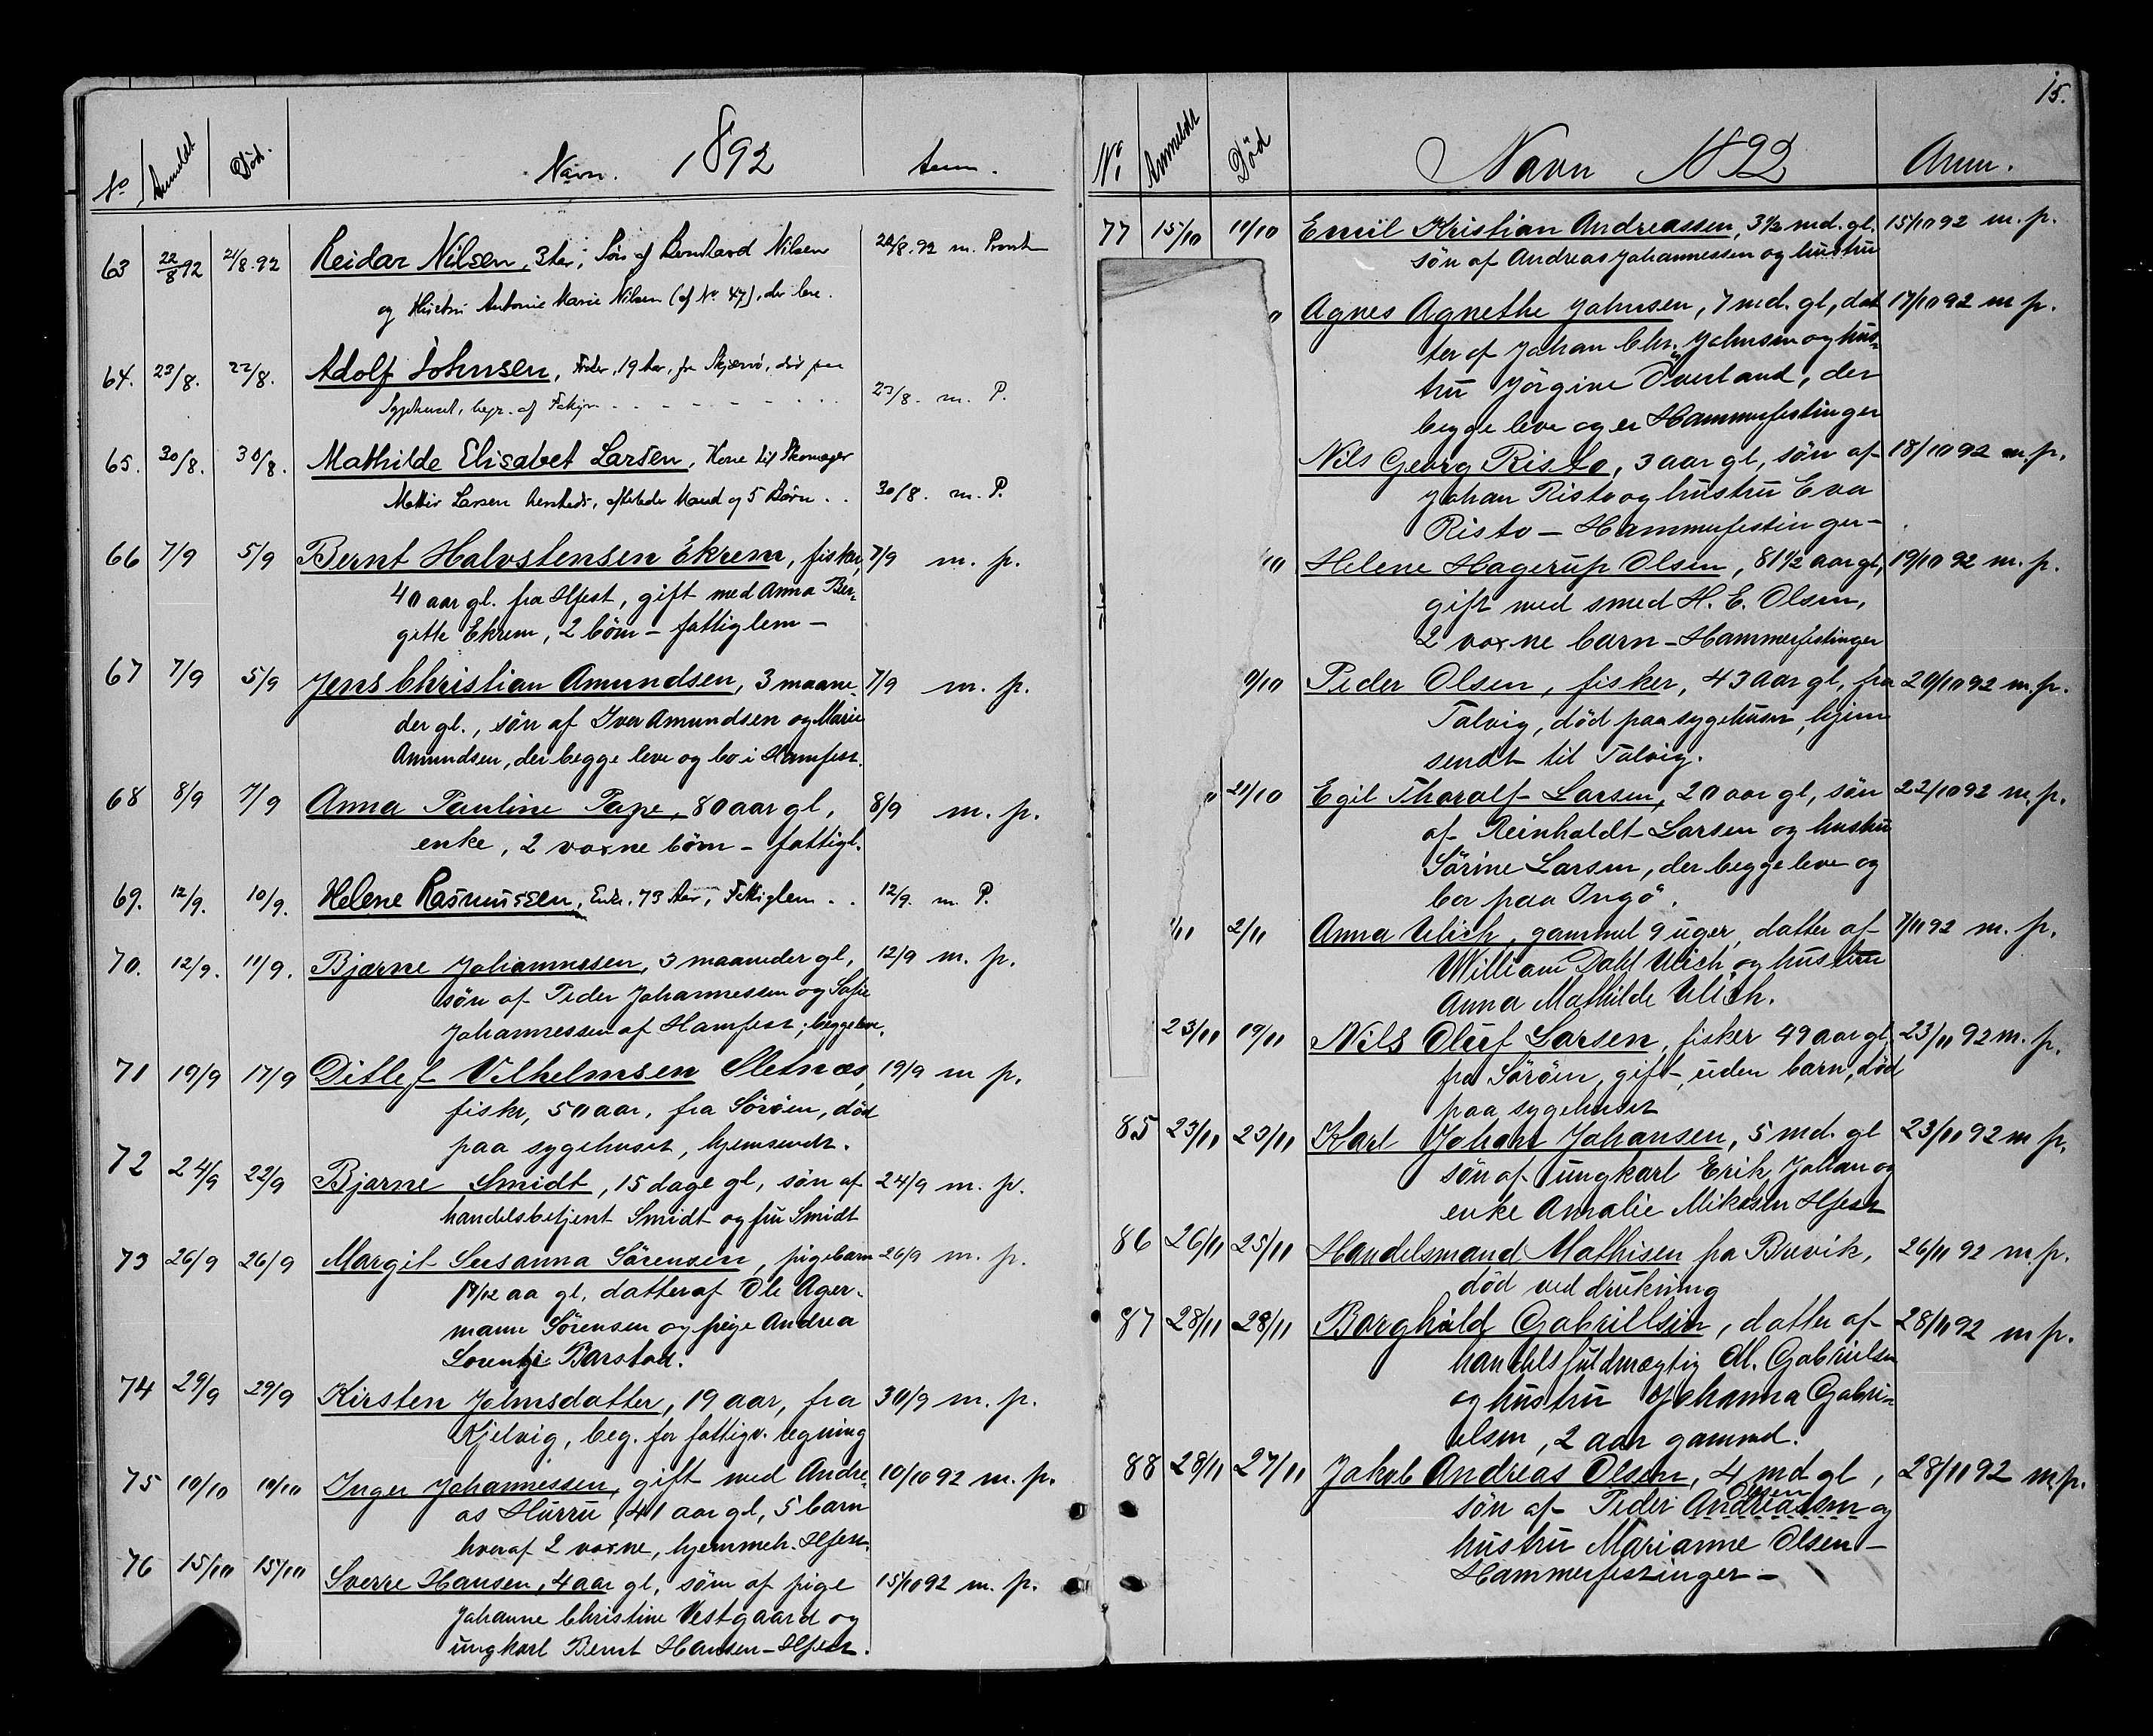 No Anmeldt Död. Navn. 1892 Anm.
63 22/8 92 21/8.92 Reidar Nilsen, 3 Aar, Søn af Bernhard Nilsen 22/8.92 m. Provst
og Hustru Antonie Marie Nilsen (cf No. 47), der leve.
64. 23/8. 22/8. Adolf Johnsen, Fisker, 19 Aar, fra Skjærvö, död paa
Sygehuset, begr. af 23/8. m. P.
65. 30/8. 30/8. Mathilde Elisabet Larsen, Kone til Skomager
Larsen hersteds, efterlader Mand og 5 Børn . . 30/8. m. P.
66 7/9 5/9 Bernt Halvstensen Ekrem, fisker, 7/9 m. p.
40 aar gl. fra Hfest, gift med Anna Ber-
gitte Ekrem, 2 börn - fattiglem -
67 7/9 5/9 Jens Christian Amundsen, 3 maane- 7/9 m. p.
der gl., sön af Iver Amundsen og Marie
Amundsen, der begge leve og bo i Hamfest.
68 8/9 7/9 Anna Pauline Pape, 80 aar gl, 8/9 m. p.
enke, 2 voxne börn - fattigl.
69. 12/9. 10/9. Helene Rasmussen, Enke, 73 Aar, Fattiglem . . 12/9. m. P.
70. 12/9. 11/9. Bjarne Johannesen, 3 maaneder gl, 12/9 m. p.
sön af Peder Johannessen og Sofie
Johannessen af Hamfest; begge leve.
71 19/9 17/9 Ditlef Vilhelmsen Sletnæs, 19/9 m p.
fiskr, 50 aar, fra Söröen, död
paa sygehuset, hjemsendt.
72 24/9 22/9 Bjarne Smidt, 15 dage gl, sön af 24/9 m. p.
handelsbetjent Smidt og fru Smidt
73 26/9 26/9 Margit Susanna Sörensen, pigebarn 26/9 m. p.
aa gl. datter af Ole Ager-
mann Sörensen og pige Andrea
Lorentze Barstad.
74 29/9 29/9 Kirsten Johnsdatter, 19 aar, fra 30/9 m. p.
Kjelvig, beg. for fattigv. regning
75 10/10 10/10 Inger Johannessen, gift med Andre- 10/10 92 m. p.
as Hurru, 41 aar gl, 5 barn
hveraf 2 voxne, hjemmeh. Hfest.
76 15/10 15/10 Sverre Hansen, 4 aar gl, sön af pige 15/10 92 m. p.
Johanne Christine Vestgaard og
ungkarl Bernt Hansen - Hfest.
15.
No Anmeldt Död Navn 1892 Anm.
77 15/10 11/10 Emil Kristian Andreassen, 3 1/2 md. gl. 15/10 92 m. p.
sön af Andreas Johannessen og hustru
Agnes Agnethe Johnsen, 7 md. gl, dat 17/10 92 m p.
ter af Johan Chr. Johnsen og hus-
tru Jörgine Överland, der
begge leve og er Hammerfestinger
Nils Georg Risto, 3 aar gl, sön af 18/10 92 m. p.
Johan Risto og hustru Eva
Risto - Hammerfestinger -
/10 Helene Hagerup Olsen, 81 1/2 aar gl, 19/10 92 m. p.
gift med smed H. E. Olsen,
2 voxne barn - Hammerfestinger
/10 Peder Olsen, fisker, 43 aar gl, fra 20/10 92 m. p.
Talvig, död paa sygehuset, hjem
sendt til Talvig.
21/10 Egil Tharalf Larsen, 20 aar gl, sön 22/10 92 m. p.
af Reinholdt Larsen og hustru
Sörine Larsen, der begge leve og
bor paa Ingö.
/11 2/11 Anna Ulich, gammel 9 uger, datter af 7/11 92 m. p.
William Dahl Ulich og hustru
Anna Mathilde Ulich.
23/11 19/11 Nils Oluf Larsen, fisker 49 aar gl, 23/11 92 m. p.
fra Söröen, gift, uden barn, död
paa sygehuset
85 23/11 23/11 Karl Johan Johansen, 5 md. gl 23/11 92 m p.
sön af ungkarl Erik Johan og
enke Amalie Mikkelsen Hfest
86 26/11 25/11 Handelsmand Mathisen fra Buvik, 26/11 92 m. p.
död ved drukning
87 28/11 28/11 Borghild Gabrillsen, datter af 28/11 92 m p.
handelsfuldmægtig M. Gabrielsen
og hustru Johanna Gabri-
elsen, 2 aar gammel.
88 28/11 27/11 Jakob Andreas Olsen, 4 md gl, 28/11 92 m. p.
Olsen
sön af Peder Andreassen og
hustru Marianne Olsen -
Hammerfestinger -